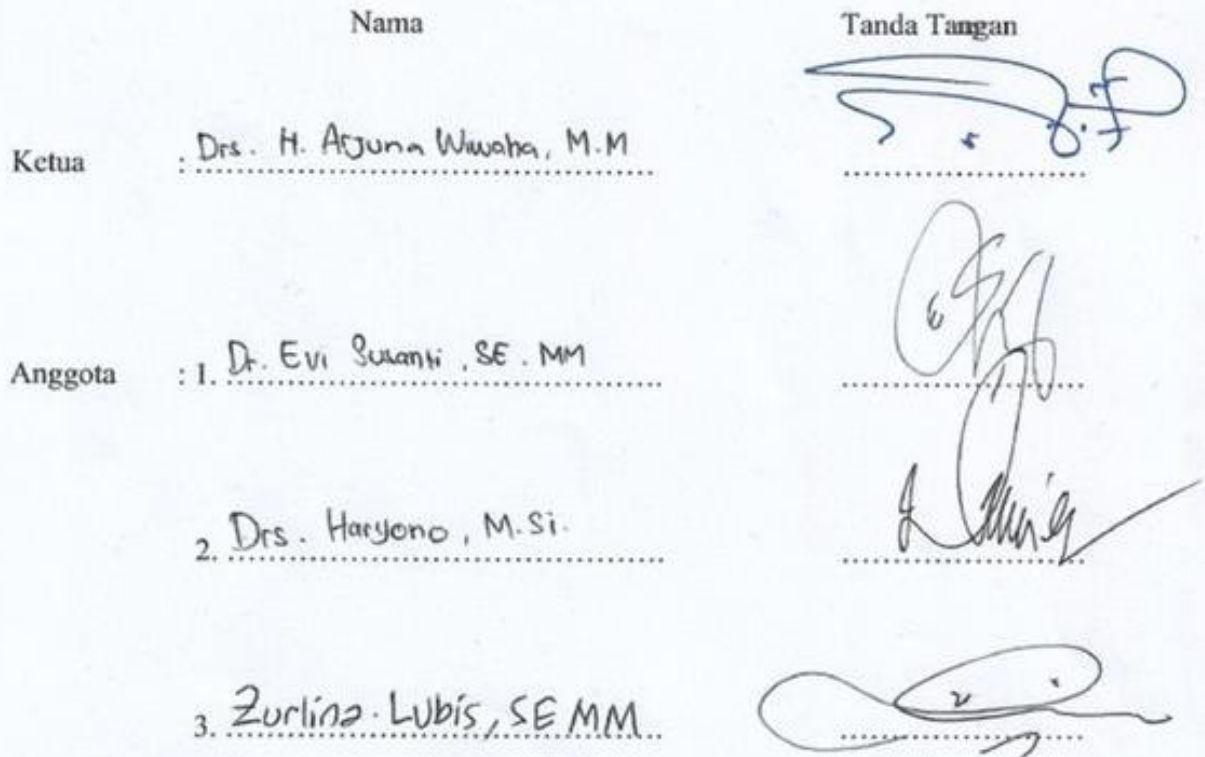 Nama Tanda Tangan
Ketua : Drs. H. Arjuna Wiwaha, M.M
Anggota : 1. Dr. Evi Susanti, SE. MM
2. Drs. Haryono, M.Si.
3. Zurlina. Lubis, SE MM